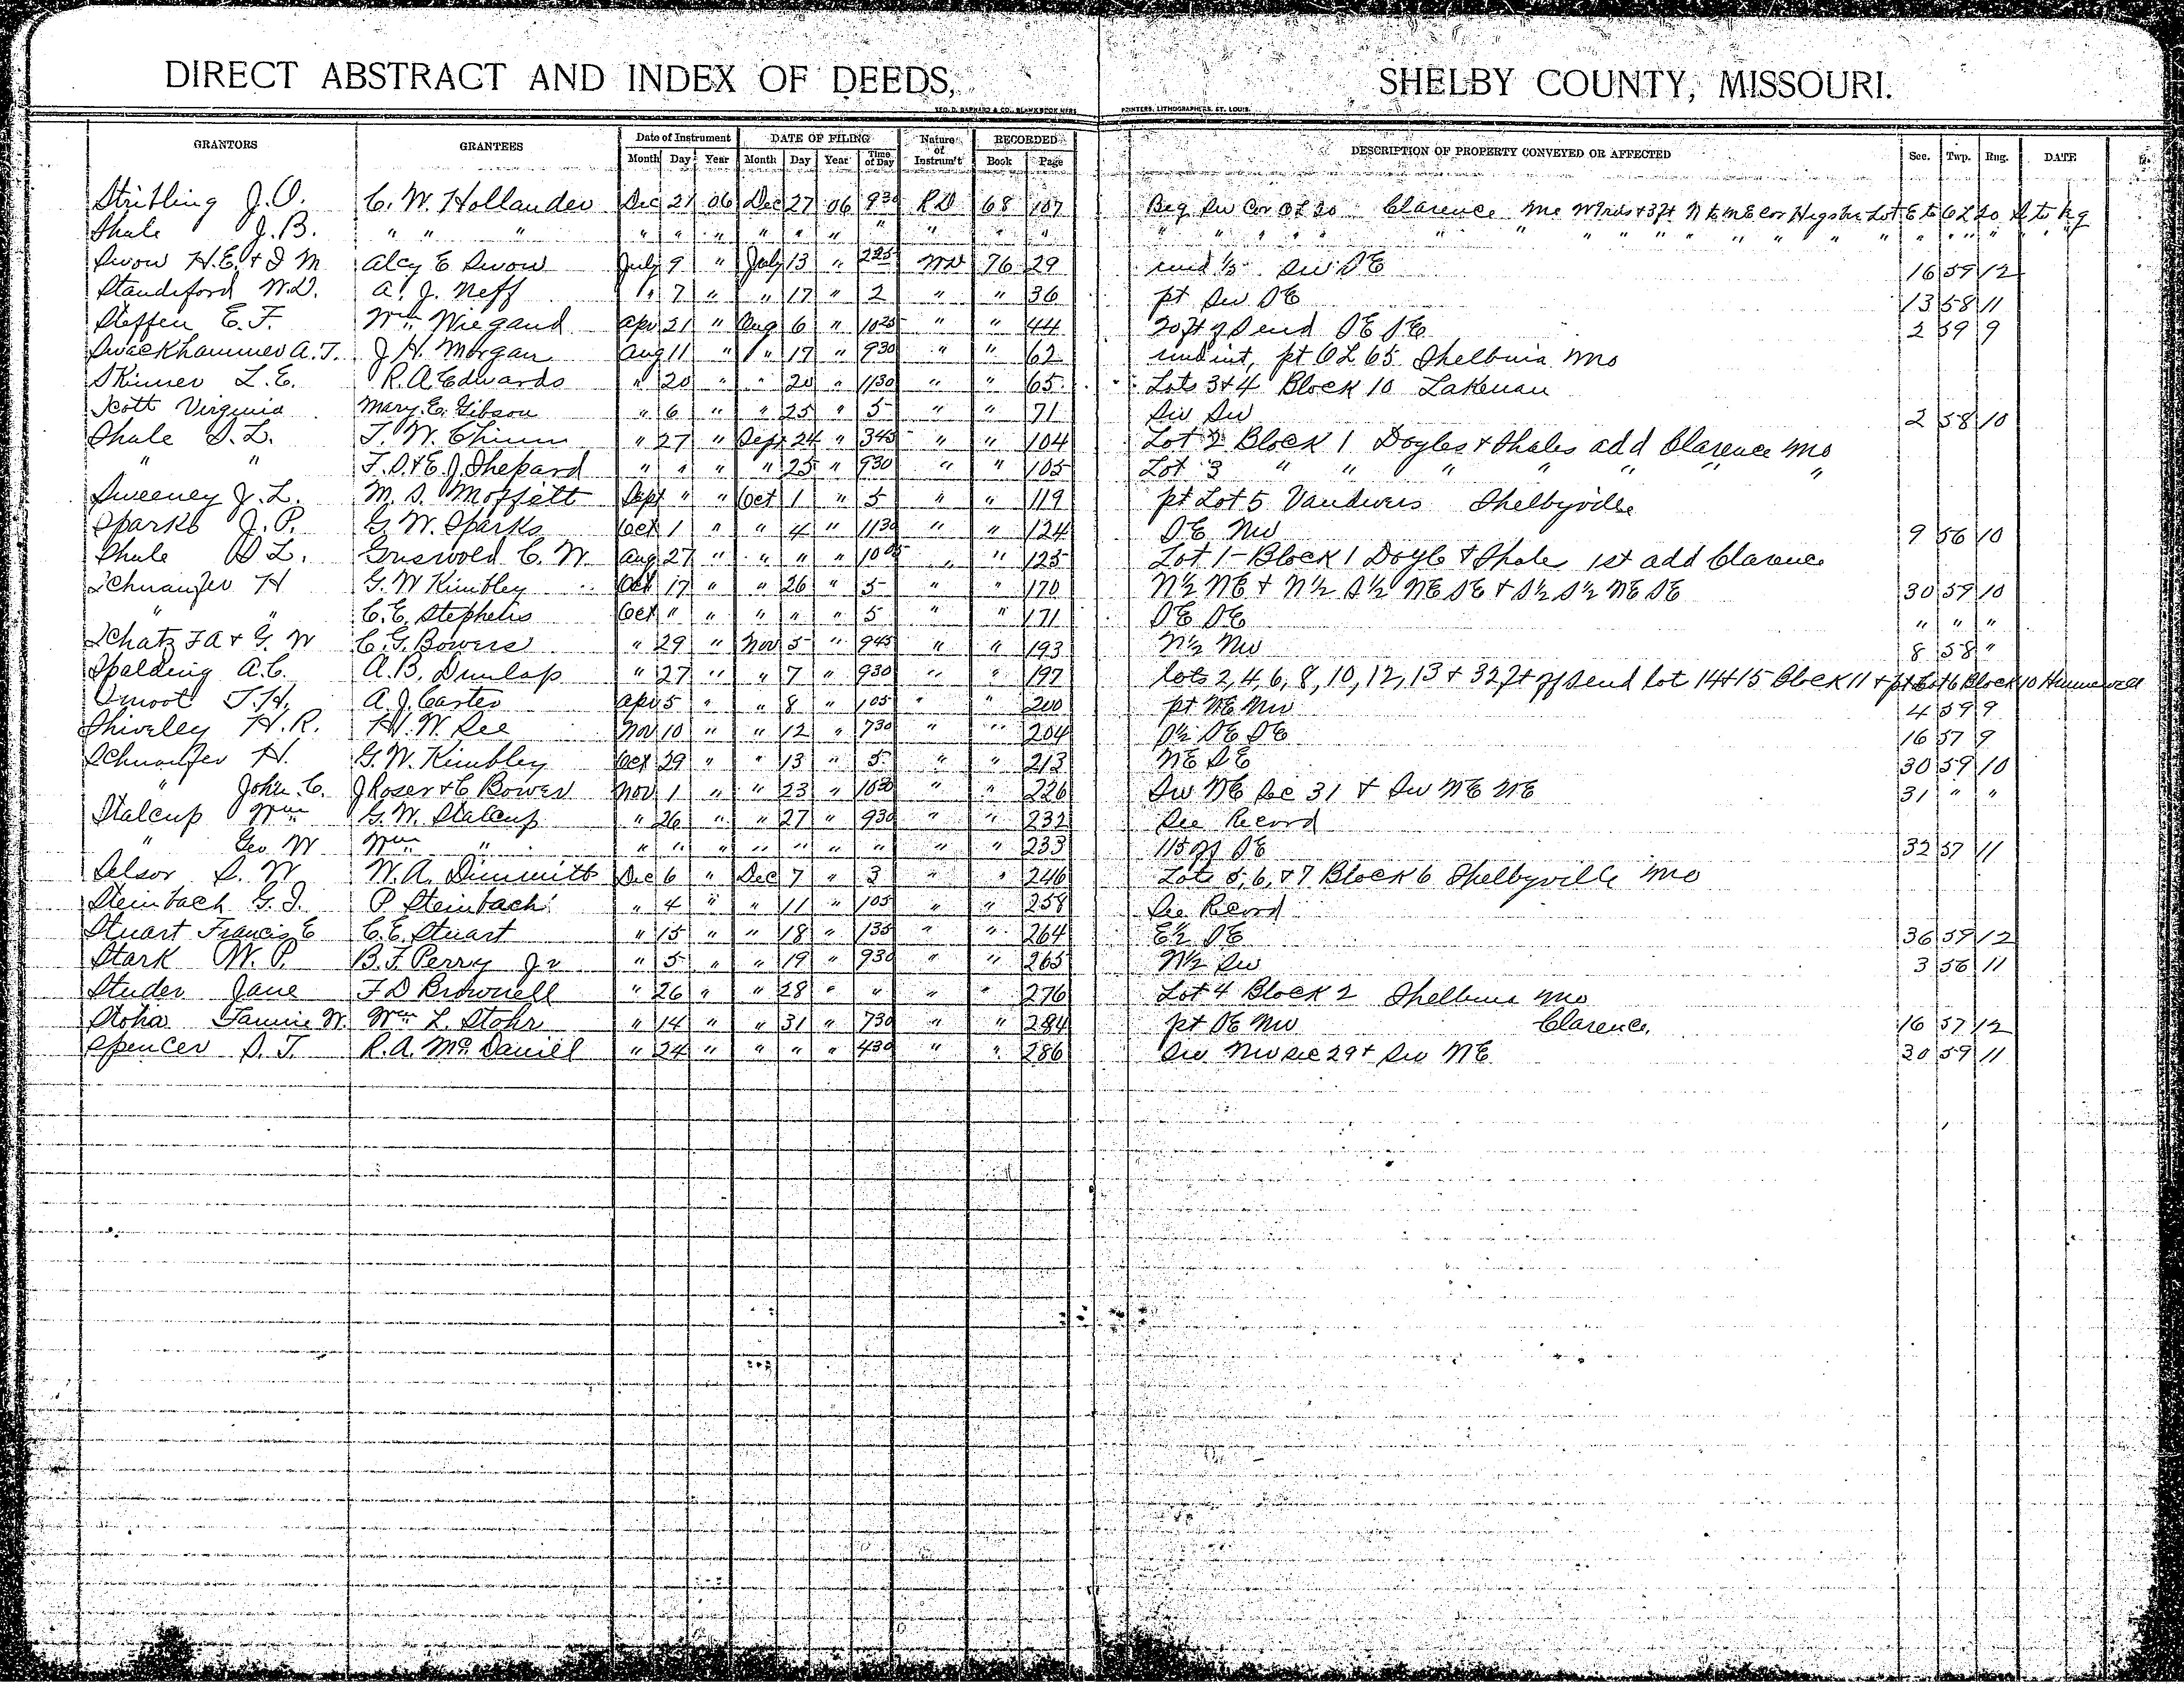 DIRECT ABSTRACT AND INDEX OF DEEDS, SHELBY COUNTY, MISSOURI.
GEO. D. BARNARD & CO., BLANK BOOK MFRS. PRINTERS, LITHOGRAPHERS, ST. LOUIS.
GRANTORS GRANTEES Date of Instrument DATE OF FILING Nature of Instrum't RECORDED DESCRIPTION OF PROPERTY CONVEYED OR AFFECTED Sec. Twp. Rng. DATE
Month Day Year Month Day Year Time of Day Book Page
Stribling J.O. C. W. Hollander Dec 21 06 Dec 27 06 930 RD 68 107 Beg Sw Cor OL 20 Clarence Mo W 9 rds + 3 ft N to NE cor Lot E to OL 20 S to Bg
Shale J.B. " " " " " " " " " " " " " " " " " " " " " " " " " "
Swow H.E. + J M Alcy E Swow July 9 " July 13 " 225 WD 76 29 und 1/5 Sw SE 16 59 12
Standiford W.D. A. J. Neff " 7 " " 17 " 2 " " 36 pt Sw SE 13 58 11
Steffen E. F. Wm Wiegand Apr 21 " Aug 6 " 1025 " " 44 20 ft of S end SE SE 2 59 9
Swackhammer A.T. J. H. Morgan Aug 11 " " 17 " 930 " " 62 und int, pt OL 65 Shelbina Mo
Skinner L.E. R.A. Edwards " 20 " " 20 " 1130 " " 65 Lots 3+4 Block 10 Lakenan
Scott Virginia Mary E. Gibson " 6 " " 25 " 5 " " 71 Sw Sw 2 58 10
Shale S.L. T. W. Chinn " 27 " Sept 24 " 345 " " 104 Lot 2 Block 1 Doyles + Shales add Clarence Mo
" " F.D. + E.J. Shepard " " " " 25 " 930 " " 105 Lot 3 " " " " " " "
Sweeney J.L. M. S. Moffett Sept " " Oct 1 " 5 " " 119 pt Lot 5 Vandivers Shelbyville
Sparks J.P. G. W. Sparks Oct 1 " " 4 " 1130 " " 124 SE Nw 9 56 10
Shale S L. Griswold C. W. Aug 27 " " " " 1005 " " 125 Lot 1 - Block 1 Doyle + Shale 1st add Clarence
Schwanfer H G. W Kimbley Oct 17 " " 26 " 5 " " 170 N½ NE + N½ S½ NE SE + S½ S½ NE SE 30 59 10
" " C.E. Stephens Oct " " " " " 5 " " 171 SE SE " " "
Schatz F A + G. W C. G. Bowers " 29 " Nov 5 " 945 " " 193 N½ Nw 8 58 "
Spalding A.C. A.B. Dunlap " 27 " " 7 " 930 " " 197 lots 2, 4, 6, 8, 10, 12, 13 + 32 ft off S end lot 14+15 Block 11 + pt Lot 6 Block 10 Hunnewell
Smoot T.H. A. J. Carter Apr 5 " " 8 " 105 " " 200 pt NE Nw 4 59 9
Shiveley H.R. H. W. See Nov 10 " " 12 " 730 " " 204 S½ SE SE 16 57 9
Schwanfer H. G. W. Kimbley Oct 29 " " 13 " 5 " " 213 NE SE 30 59 10
" John C. J Roser + C Bower Nov 1 " " 23 " 1030 " " 226 Sw NE Sec 31 + Sw NE NE 31 " "
Stalcup Wm G. W. Stalcup " 26 " " 27 " 930 " " 232 See Record
" Geo W Wm " " " " " " " " " " 233 115 of SE 32 57 11
Selsor S. W W. A. Dimmitt Dec 6 " Dec 7 " 3 " " 246 Lots 5, 6, +7 Block 6 Shelbyville Mo
Steinbach G. J. P Steinbach " 4 " " 11 " 105 " " 258 See Record
Stuart Francis E C.E. Stuart " 15 " " 18 " 135 " " 264 E½ SE 36 59 12
Stark W. P. B. F. Perry Jr " 5 " " 19 " 930 " " 265 N½ Sw 3 56 11
Studer Jane F D Brownell " 26 " " 28 " " " " 276 Lot 4 Block 2 Shelbina Mo
Stoha Fannie W. Wm L. Stohr " 14 " " 31 " 730 " " 284 pt SE Nw Clarence 16 57 12
Spencer S. T. R.A. McDaniel " 24 " " " " 430 " " 286 Sw Nw Sec 29 + Sw NE 30 59 11